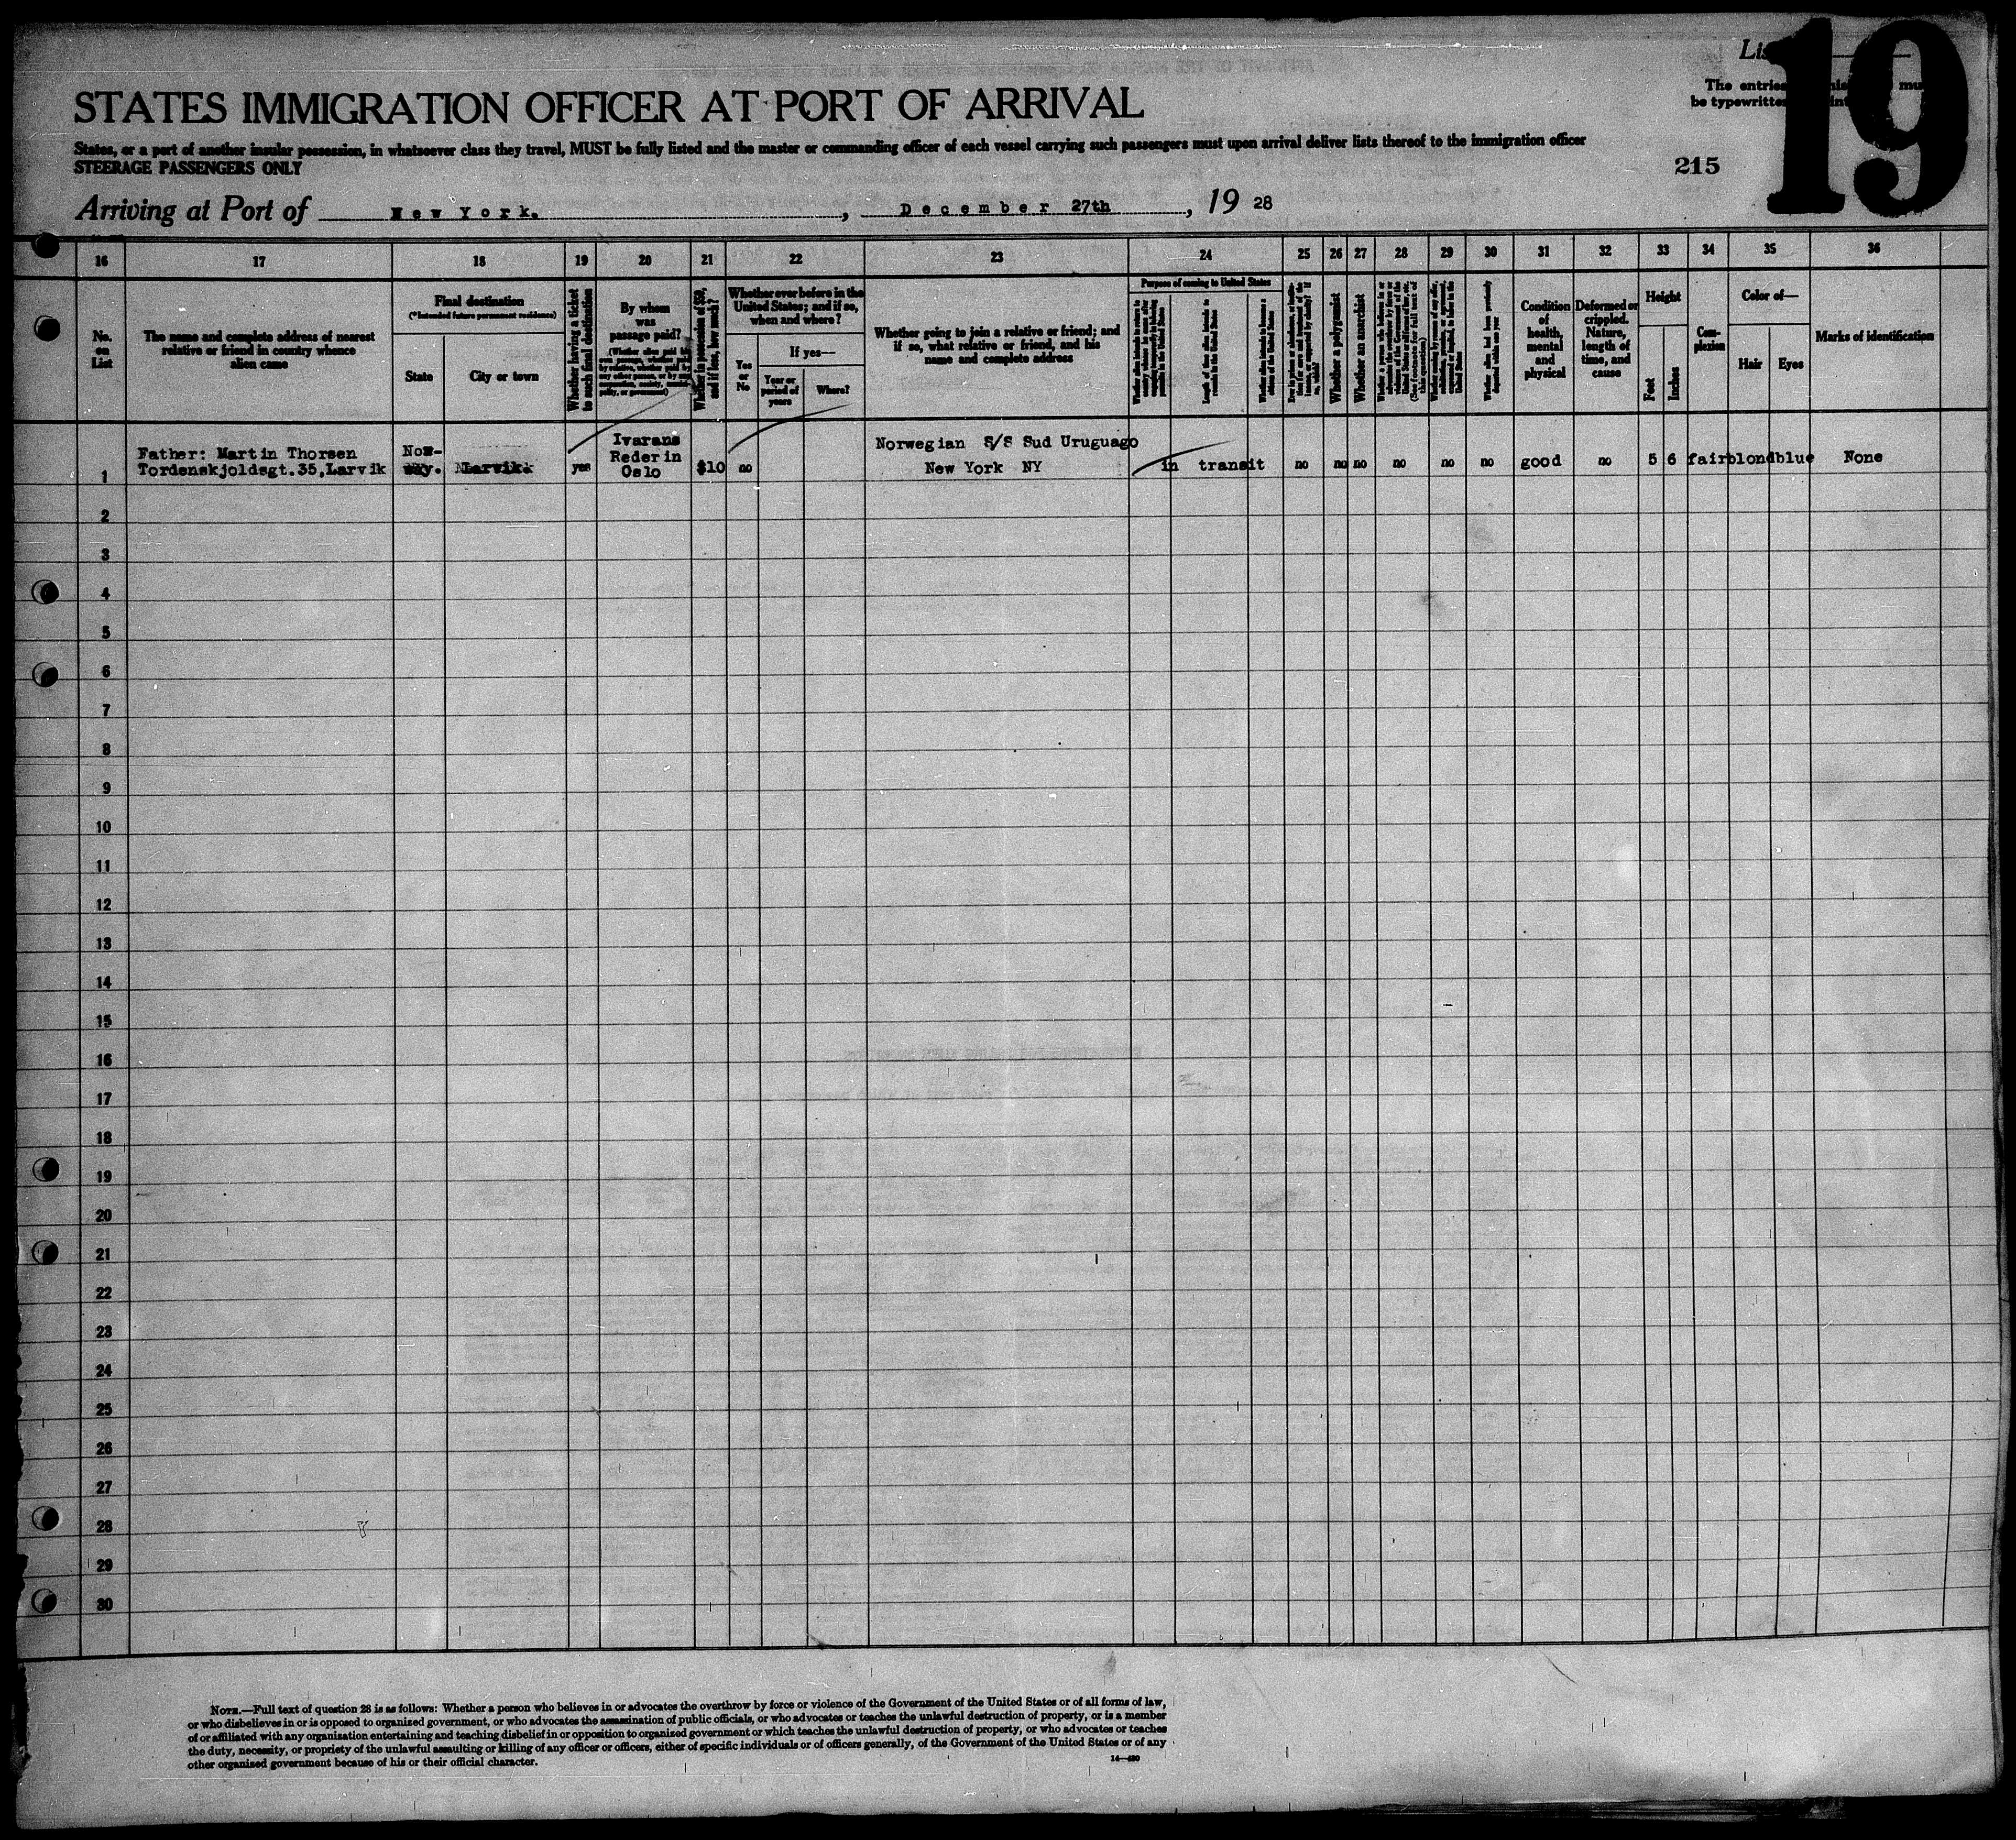 19
215
STATES IMMIGRATION OFFICER AT PORT OF ARRIVAL
States, or a port of another insular possession, in whatsoever class they travel, MUST be fully listed and the master or commanding officer of each vessel carrying such passengers must upon arrival deliver lists thereof to the immigration officer
STEERAGE PASSENGERS ONLY
Arriving at Port of New York. , December 27th , 19 28
16 17 18 19 20 21 22 23 24 25 26 27 28 29 30 31 32 33 34 35 36
No.
on
List
The name and complete address of nearest
relative or friend in country whence
alien came
Final destination
(*Intended future permanent residence)
State
City or town
Whether having a ticket
to such final destination
By whom
was
passage paid?
Whether in possession of $50,
and if less, how much?
Whether ever before in the
United States; and if so,
when and where?
Yes
or
No
If yes—
Year or
period of
years
Where?
Whether going to join a relative or friend; and
if so, what relative or friend, and his
name and complete address
Purpose of coming to United States
Whether a polygamist
Whether an anarchist
Condition
of
health,
mental
and
physical
Deformed or
crippled.
Nature,
length of
time, and
cause
Height
Feet
Inches
Com-
plexion
Color of—
Hair
Eyes
Marks of identification
1
Father: Martin Thorsen
Tordenskjoldsgt.35,Larvik
Nor-
way.
Larvik
yes
Ivarans
Reder in
Oslo
$10
no
Norwegian S/S Sud Uruguago
New York NY
in transit
no no no no no no good no 5 6 fair blond blue None
2
3
4
5
6
7
8
9
10
11
12
13
14
15
16
17
18
19
20
21
22
23
24
25
26
27
28
29
30
NOTE.—Full text of question 28 is as follows: Whether a person who believes in or advocates the overthrow by force or violence of the Government of the United States or of all forms of law,
or who disbelieves in or is opposed to organized government, or who advocates the assassination of public officials, or who advocates or teaches the unlawful destruction of property, or is a member
of or affiliated with any organization entertaining and teaching disbelief in or opposition to organized government or which teaches the unlawful destruction of property, or who advocates or teaches
the duty, necessity, or propriety of the unlawful assaulting or killing of any officer or officers, either of specific individuals or of officers generally, of the Government of the United States or of any
other organized government because of his or their official character.